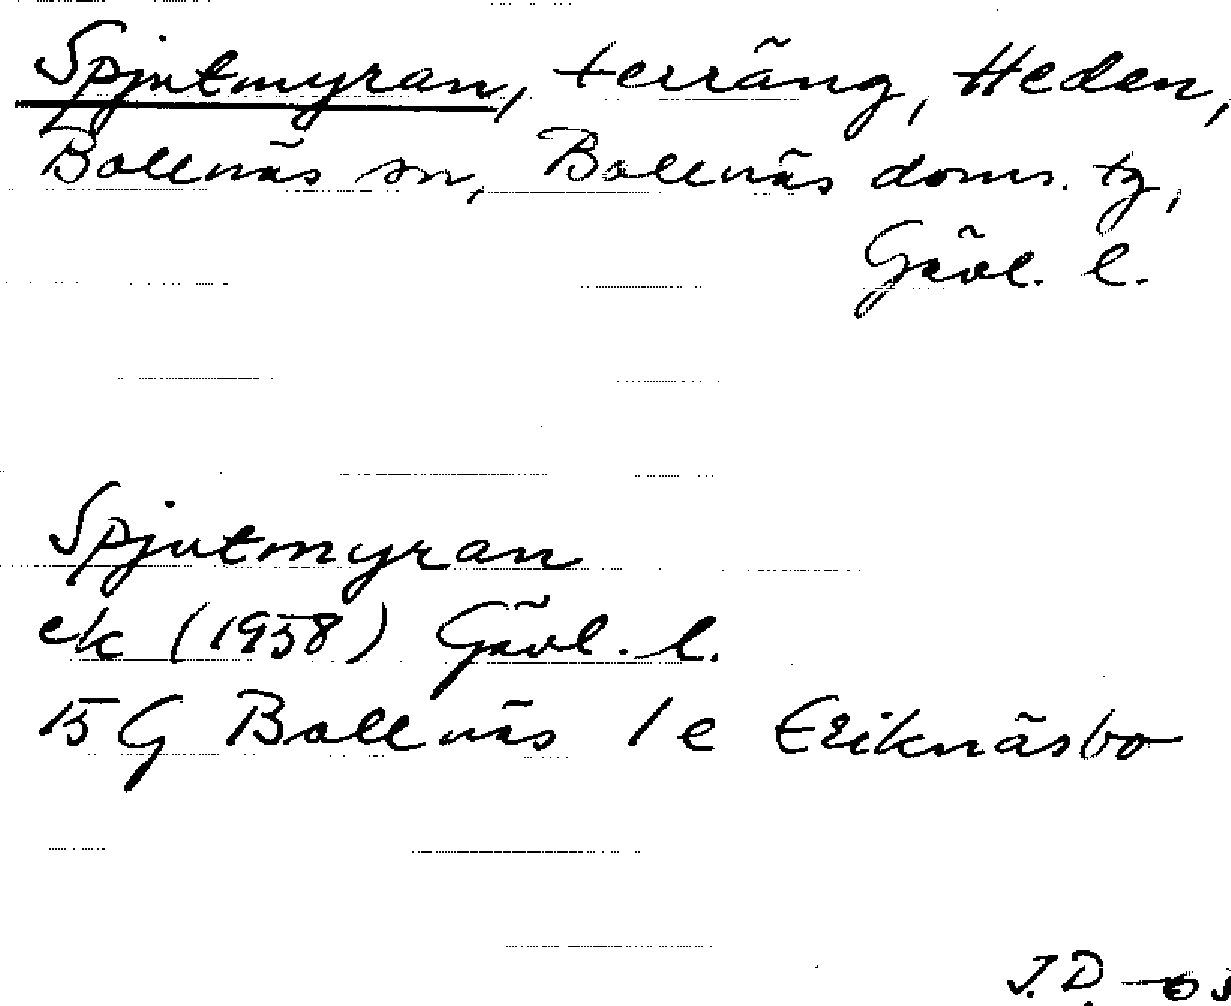 Spjutmyran, terräng, Heden,
Bollnäs sn, Bollnäs doms. tg,
Gävl. l.
Spjutmyran
ek (1958) Gävl. l.
15 G Bollnäs 1 e Eriknäsbo
J.D.